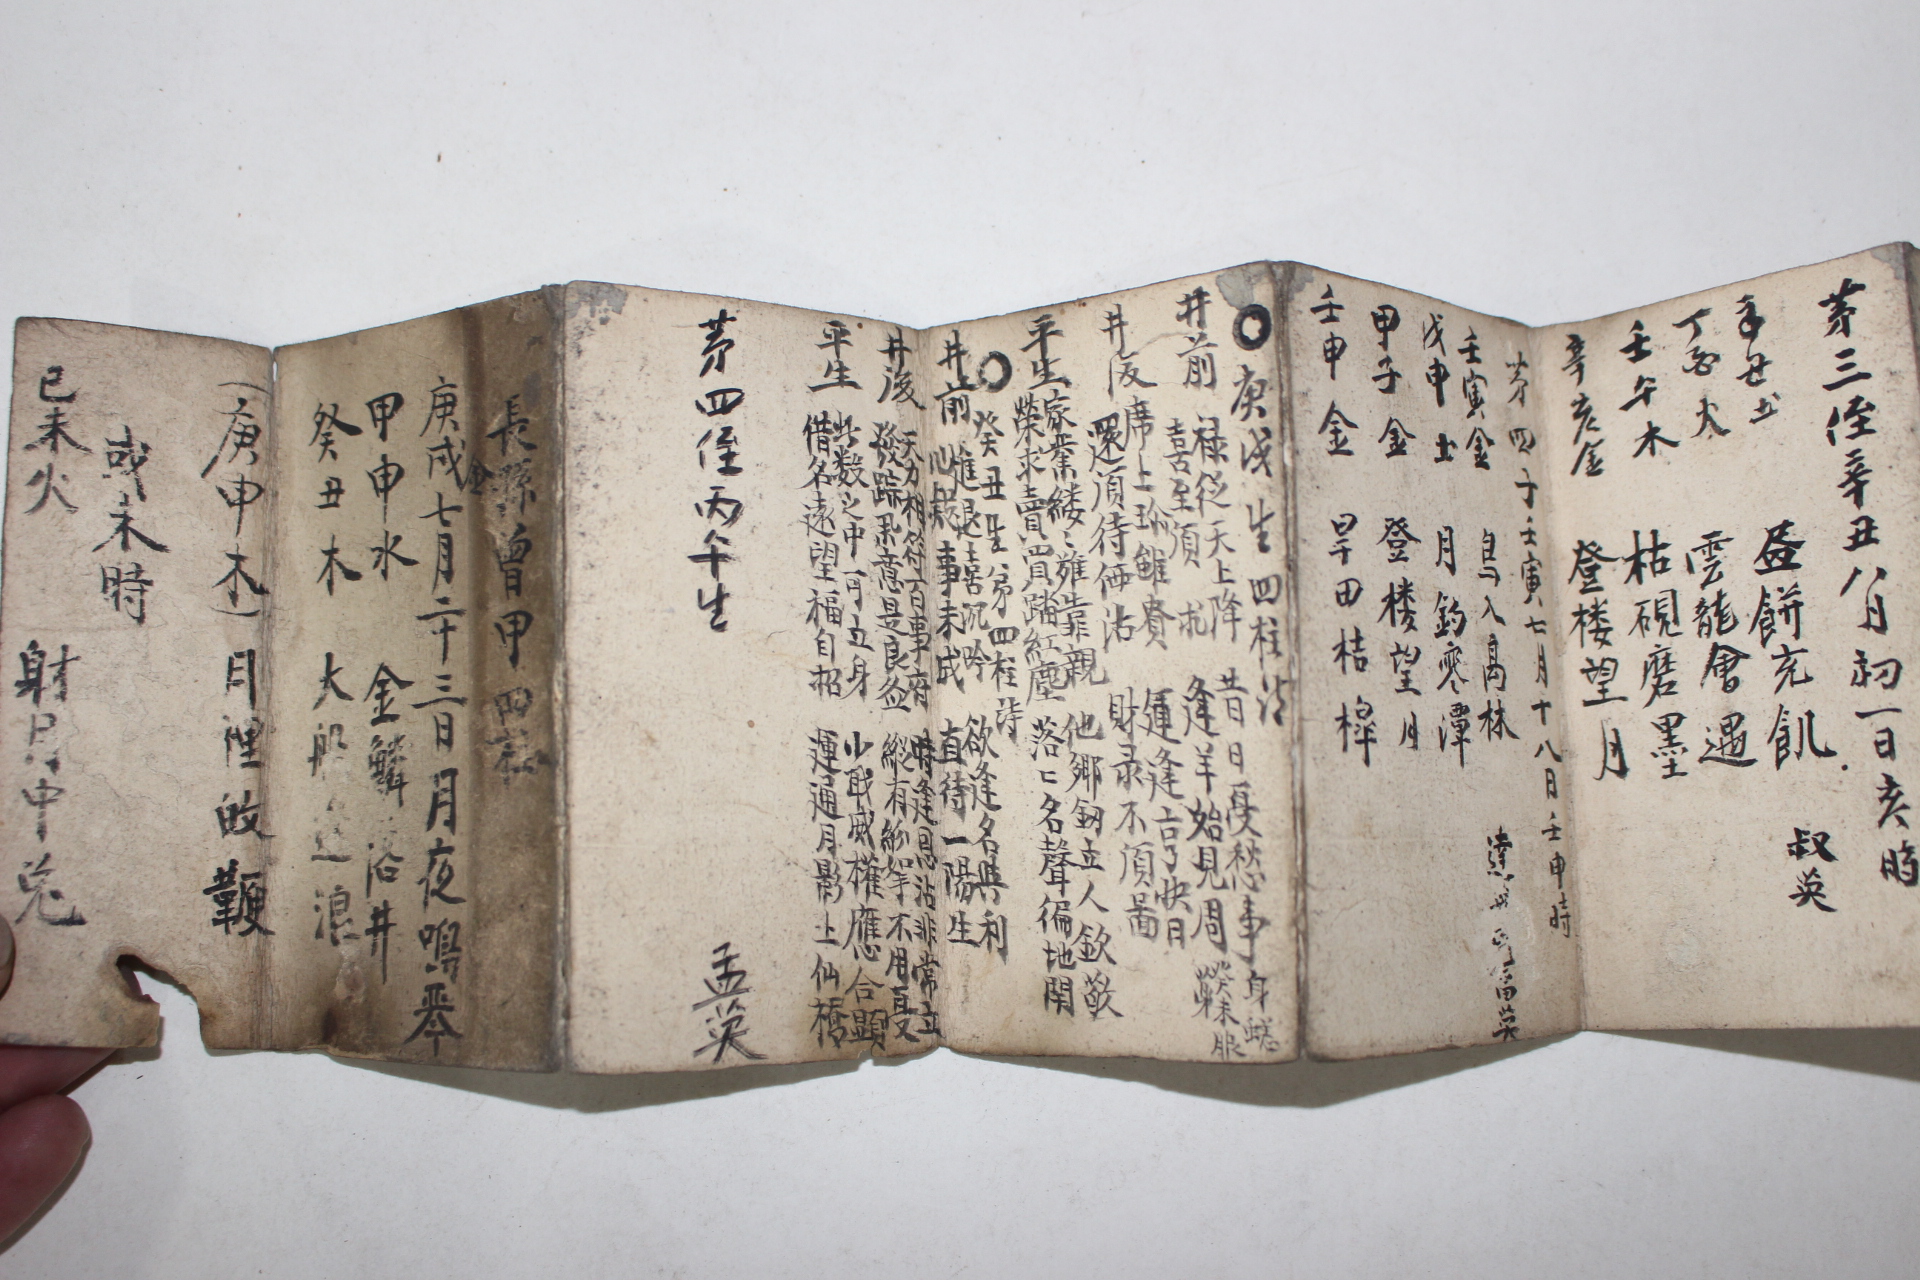 第三侄辛丑八月初一日亥時
叔英
辛丑土 畫餅充飢
丁酉火 雲龍會遇
壬午木 枯硯磨墨
辛亥金 登楼望月
第四子壬寅七月十八日壬申時
壬寅金 鳥入高林
戊申土 月釣寒潭
甲子金 登楼望月
壬申金 旱田桔槹
庚戌生四柱詩
井前 禄従天上降 昔日憂愁事
喜至須 逢羊始見周
井後 席上珍雖賚 運逢
還須待価沽 財录不須啚
平生 家業縷縷雖靠親 他郷創立人欽敬
榮求賣買踏紅塵 落落名聲徧地聞
癸丑生第四柱詩
井前 進退喜沉吟 欲逢名與利
心疑事未成 直待一陽生
井後 天力相符百事府 時逢恩沾非常立
發踪系意是良谷 縱有紛拏不用憂
平生 此数之中可立身 少戢威權應合顯
借名遠望福自招 運通月影上仙橋
第四侄丙午生
孟英
長孫曾甲四柱
庚戌金七月二十三日 月夜鳴琴
甲申水 金鱗落井
癸丑木 大船 浪
(庚申木) 月裡 鞭
或未時
己未火 射月中兎